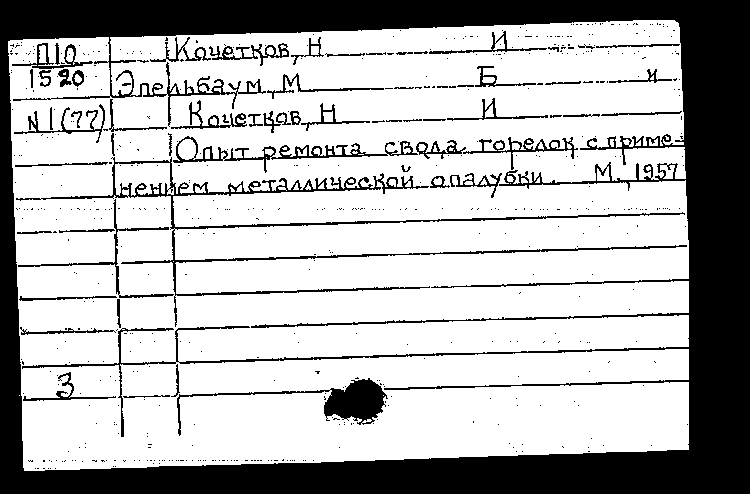 П10 Кочетков, Н И
1520 Эпельбаум, М Б и
N1(77) Кочетков, Н И
Опыт ремонта свода горелок с приме-
нением металлической опалубки. М., 1957
3